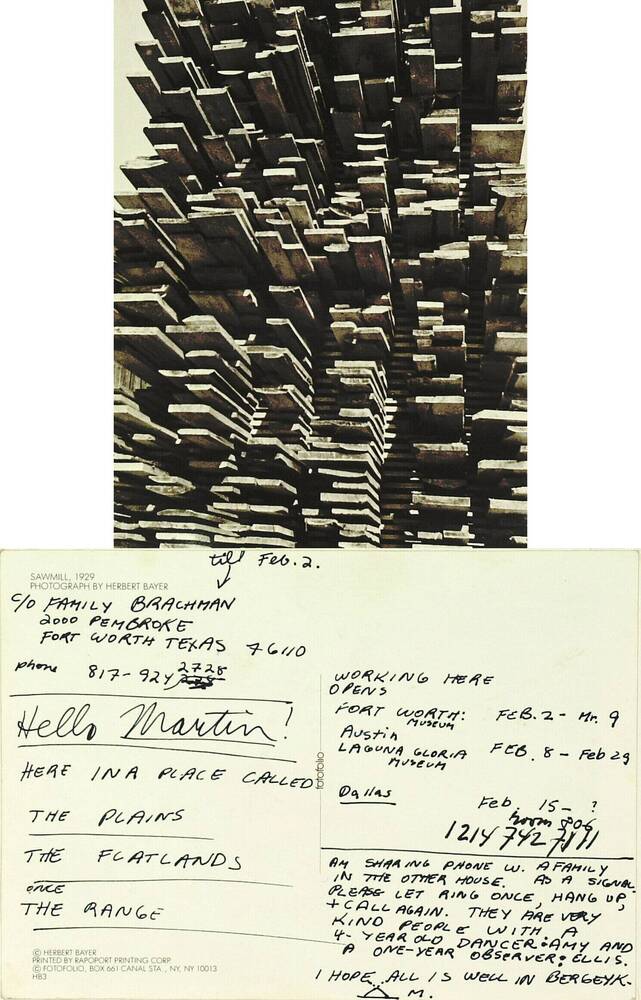 till Feb. 2.
SAWMILL, 1929
PHOTOGRAPH BY HERBERT BAYER
C/O FAMILY BRACHMAN
2000 PEMBROKE
FORT WORTH TEXAS 76110
phone 817-924 2728
Hello Martin!
HERE IN A PLACE CALLED
THE PLAINS
THE FLATLANDS
ONCE
THE RANGE
© HERBERT BAYER
PRINTED BY RAPOPORT PRINTING CORP.
© FOTOFOLIO, BOX 661 CANAL STA., NY, NY 10013
HB3
fotofolio
WORKING HERE
OPENS
FORT WORTH: FEB. 2 - Mr. 9
MUSEUM
Austin
LAGUNA GLORIA FEB. 8 - Feb 29
MUSEUM
Dallas
Feb. 15 - ?
room 806
1214 742 7111
AM SHARING PHONE W. A FAMILY
IN THE OTHER HOUSE. AS A SIGNAL
PLEASE LET RING ONCE, HANG UP,
+ CALL AGAIN. THEY ARE VERY
KIND PEOPLE WITH A
4-YEAR OLD DANCER: AMY AND
A ONE-YEAR OBSERVER: ELLIS.
I HOPE ALL IS WELL IN BERGEYK.
M.